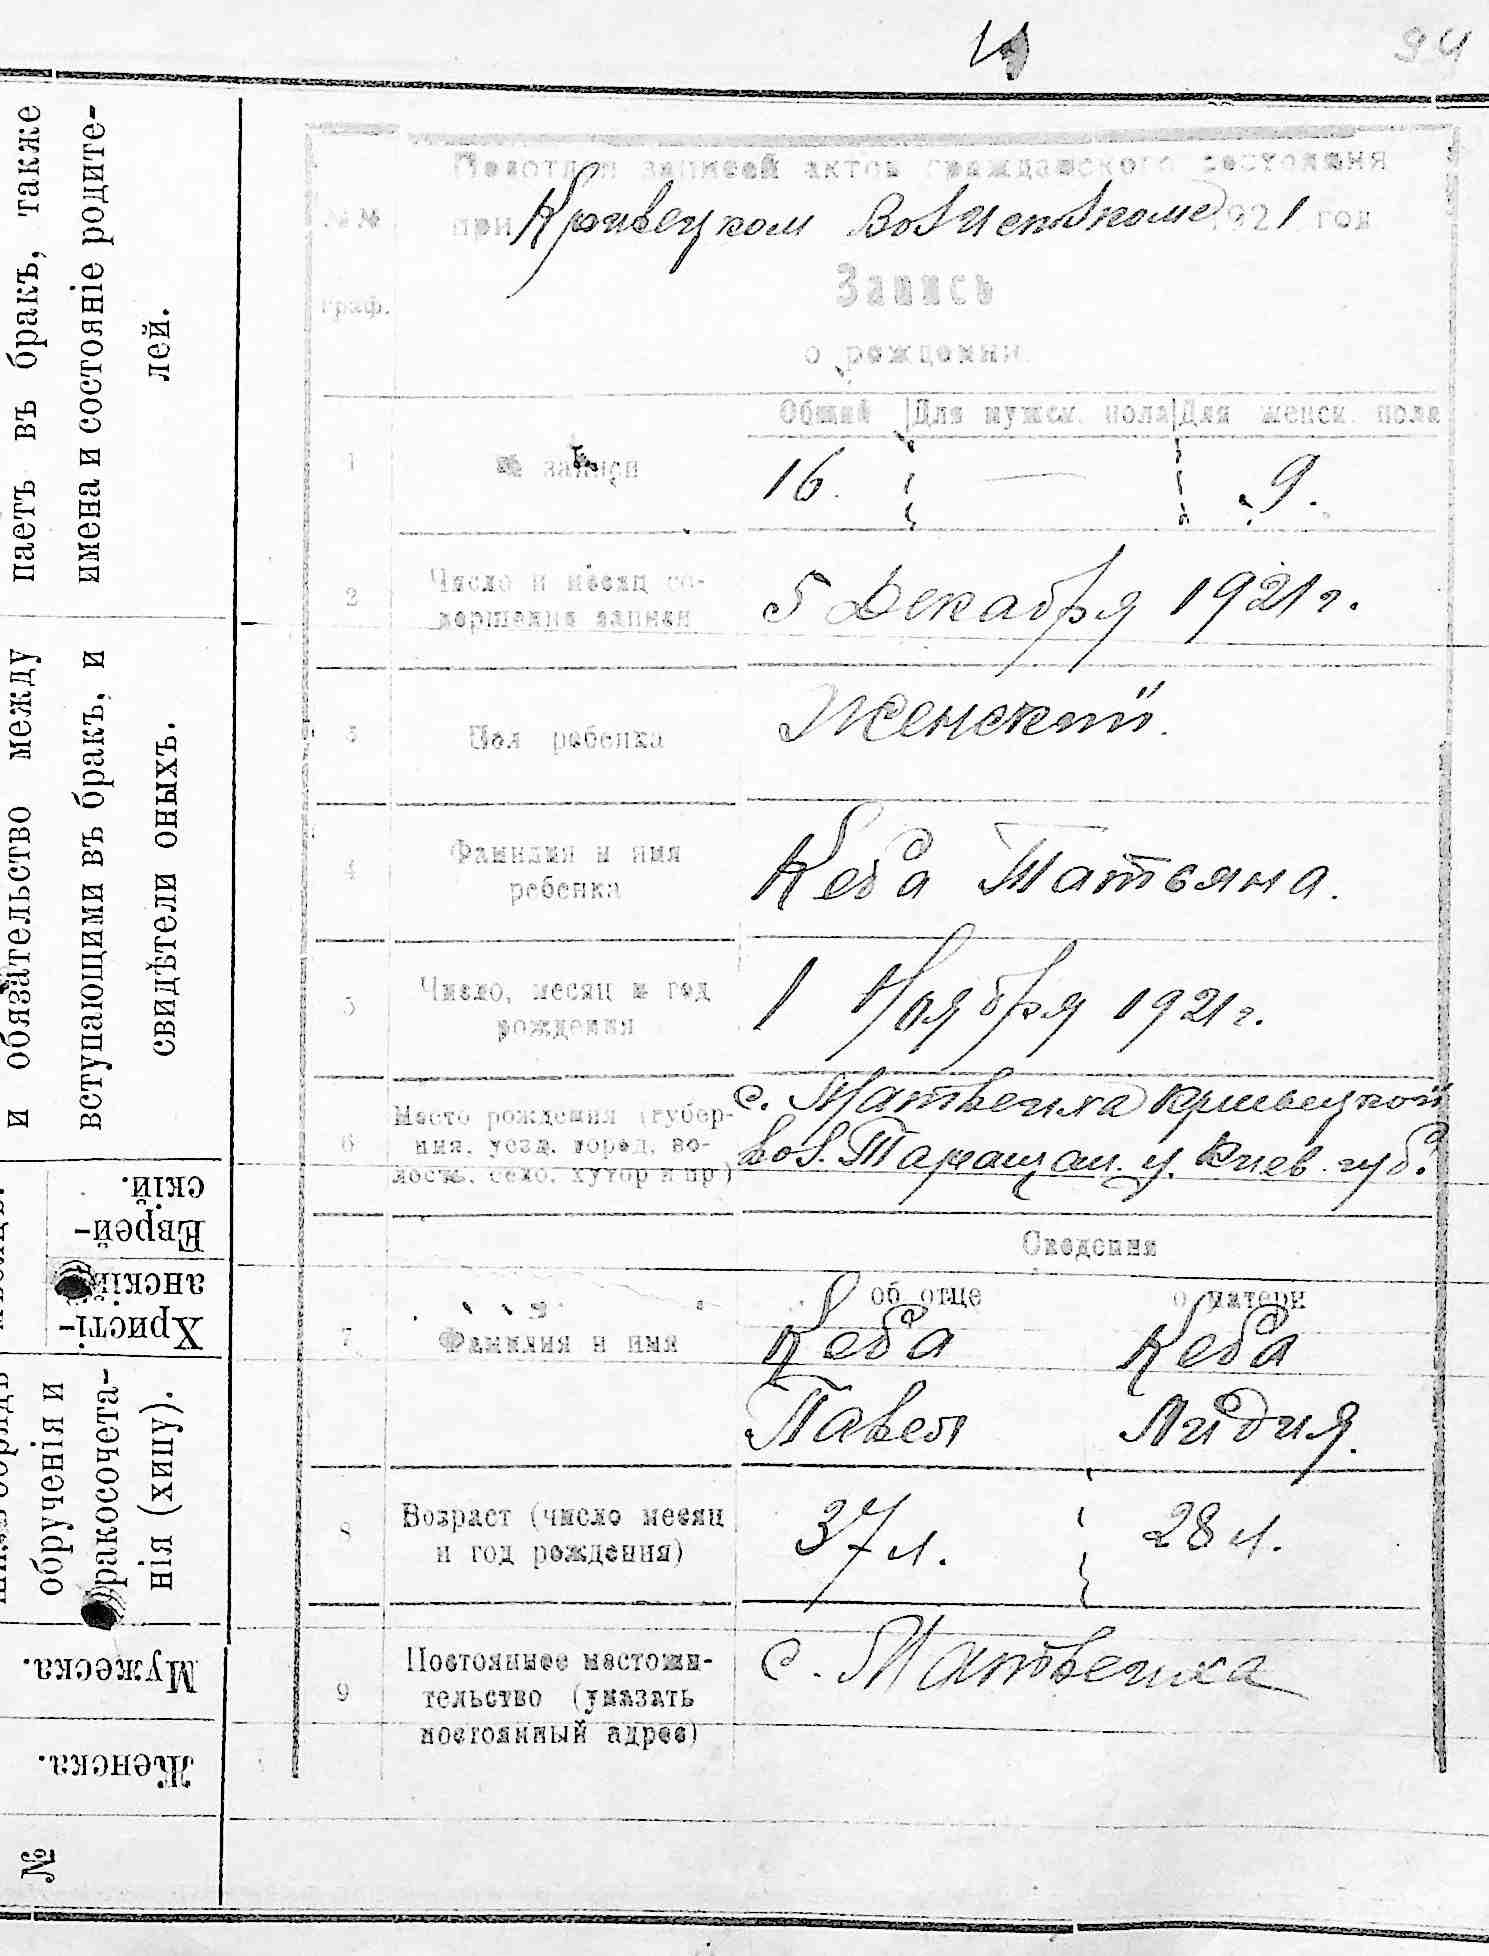 94
паетъ въ бракъ, также
имена и состояніе родите-
лей.
и обязательство между
вступающими въ бракъ, и
свидѣтели оныхъ.
Еврей-
скій.
Христі-
анскій
обрученія и
ракосочета-
нія (хипу).
Мужеска.
Женска.
№
Подотдел записей актов гражданского состояния
№№ при Кривецком Волисполкоме 1921 год
граф.
Запись
о рождении
Общий Для мужск. пола Для женск. пола
1 № записи 16. — 9.
2 Число и месяц со-
вершения записи
5 Декабря 1921 г.
3 Пол ребенка Женский.
4 Фамилия и имя
ребенка
Кеба Татьяна.
5 Число, месяц и год
рождения
1 Ноября 1921 г.
6 Место рождения (губер-
ния, уезд, город, во-
лость, село, хутор и пр)
с. Матвеиха Кривецкой
Вол. Таращан. у. Киев. губ.
Сведения
об отце о матери
7 Фамилия и имя Кеба Кеба
Павел Лидия.
8 Возраст (число месяц
и год рождения)
37 л. 28 л.
9 Постоянное местожи-
тельство (указать
постоянный адрес)
с. Матвеиха